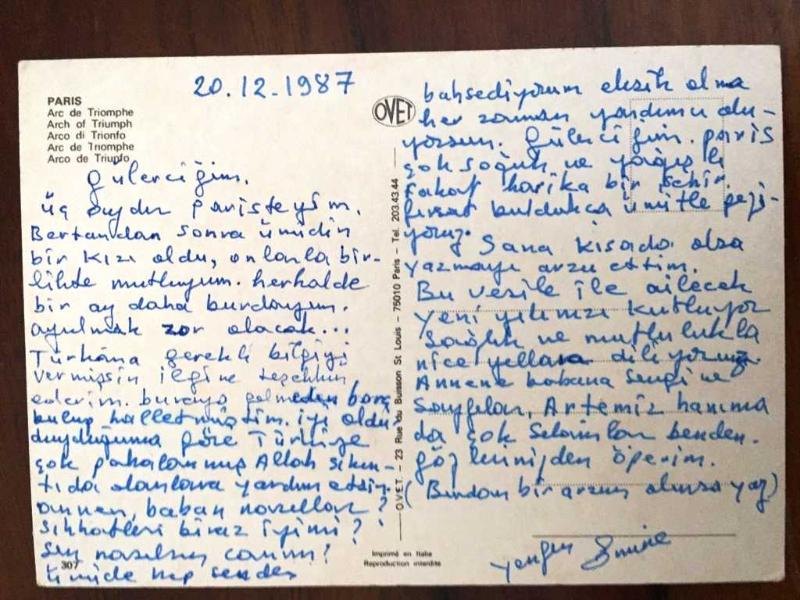 20.12.1987
PARIS
Arc de Triomphe
Arch of Triumph
Arco di Trionfo
Arc de Triomphe
Arco de Triunfo
Gülerciğim.
üç aydır Paristeyim.
Bertandan sonra ümidin
bir kızı oldu, onlarla bir-
likte mutluyum. herhalde
bir ay daha burdayım.
ayrılmak zor olacak...
Türkâna gerekli bilgiyi
vermişsin ilgine teşekkür
ederim. buraya gelmeden borç
bulup halletmiştim. iyi oldu
duyduğuma göre Türkiye
çok pahalanmış Allah sıkın-
tıda olanlara yardım etsin.
annen, baban nasıllar?
sıhhatleri biraz iyimi?
Sen nasılsın canım?
ümide hep senden
307
bahsediyorum eksik olma
her zaman yardımcı olu-
yorsun. Gülerciğim. paris
çok soğuk ve yağışlı
fakat harika bir şehir.
fırsat buldukca ümitle gezi-
yoruz. Sana kısada olsa
yazmayı arzu ettim.
Bu vesile ile ailecek
yeni yılınızı kutluyor
sağlık ve mutlulukla
nice yıllara diliyorum.
Annene babana sevgi ve
saygılar, Artemiz hanıma
da çok selamlar benden.
gözlerinizden öperim.
(Burdan bir arzun olursa yaz)
yengen Emine
OVET
O.V.E.T. - 23 Rue du Buisson St Louis - 75010 Paris - Tel. 203.43.44
Imprimé en Italie
Reproduction interdite